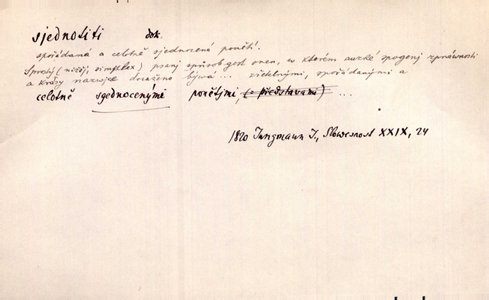 sjednotiti dok.
spořádaná a celotně sjednocená ponětí.
Sprostý (nižší, simplex) psaní spůsob gest onen, w kterém auzké spogení zpráwnosti
a krásy naswjek doraženo býwá ... zřetelnými, spořádanými a
celotně sgednocenými ponětjmi (a představami) ...
1820 Jungmann J., Slowesnost XXIX, 24